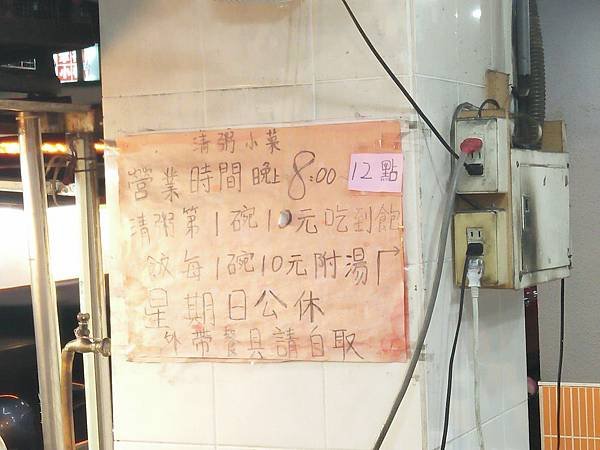 清粥小菜
營業時間晚上8:00 12點
清粥第1碗10元吃到飽
飯每1碗10元附湯
星期日公休
外帶餐具請自取